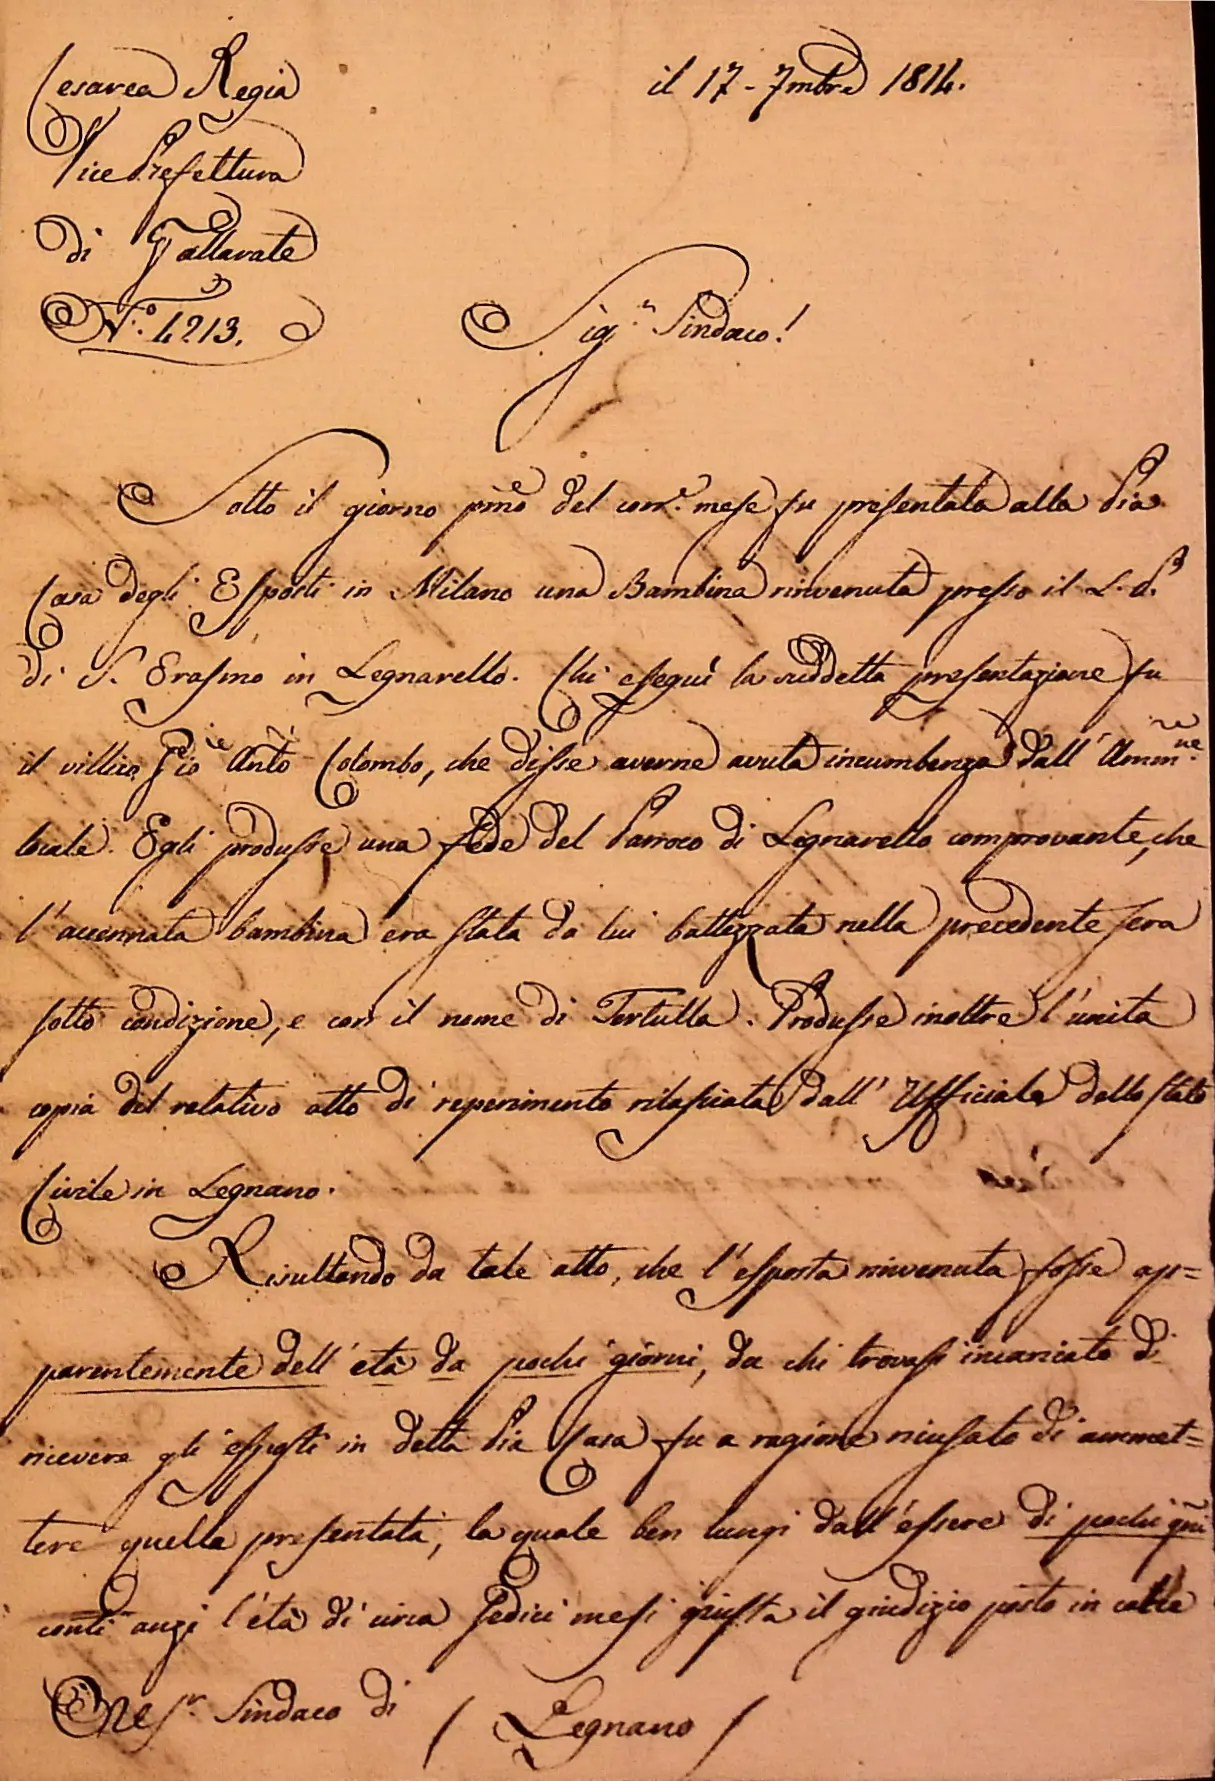 Cesarea Regia
il 17 - 7mbre 1814.
Vice Prefettura
di Gallarate
N.º 4213.
Sig.r Sindaco!
Sotto il giorno pmo del corr.e mese fu presentata alla Pia
Casa degli Esposti in Milano una Bambina rinvenuta presso il L.
di S. Erasmo in Legnarello. Chi eseguì la suddetta presentazione fu
il villico Gio Anto Colombo, che disse averne avuta incumbenza dall' Ammne
locale. Egli produsse una fede del Parroco di Legnarello comprovante, che
l'accennata bambina era stata da lui battezzata nella precedente sera
sotto condizione, e con il nome di Tertulla. Produsse inoltre l'unita
copia del relativo atto di reperimento rilasciata dall' Ufficiale dello stato
Civile in Legnano.
Risultando da tale atto, che l'esposta rinvenuta fosse ap=
parentemente dell' età da pochi giorni, da chi trovasi incaricato di
ricevere gli esposti in detta Pia Casa fu a ragione ricusato di ammet=
tere quella presentata, la quale ben lungi dall'essere di pochi gni
conti anzi l'età di circa sedici mesi giusta il giudizio posto in calce
Al Sr. Sindaco di / Legnano /